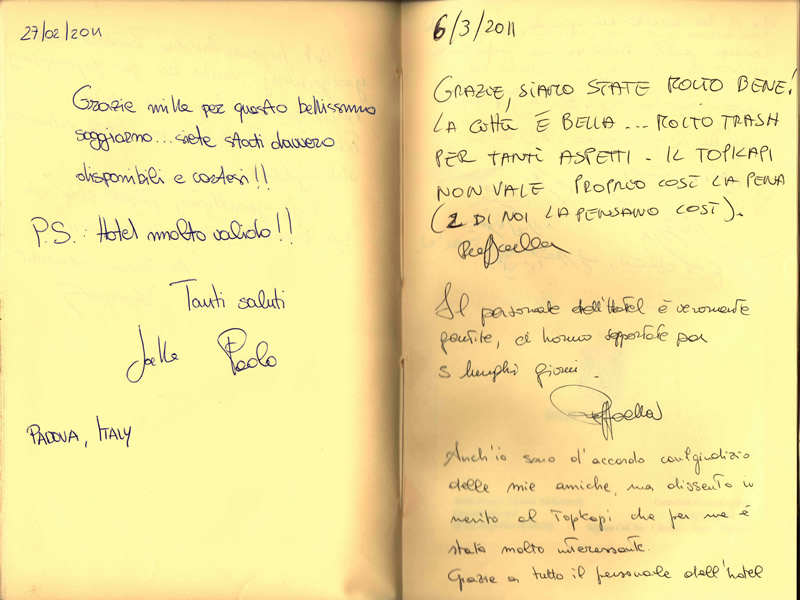 27/02/2011
Grazie mille per questo bellissimo
soggiorno... siete stati davvero
disponibili e cortesi!!
P.S.: Hotel molto valido!!
Tanti saluti
Joelle Paolo
PADOVA, ITALY
6/3/2011
GRAZIE, SIAMO STATE MOLTO BENE!
LA CITTÀ È BELLA... MOLTO TRASH
PER TANTI ASPETTI. IL TOPKAPI
NON VALE PROPRIO COSÌ LA PENA
(2 DI NOI LA PENSANO COSÌ).
Raffaella
Il personale dell'Hotel è veramente
gentile, ci hanno sopportate per
5 lunghi giorni.
Raffaella
Anch'io sono d'accordo col giudizio
delle mie amiche, ma dissento in
merito al Topkapi che per me è
stato molto interessante.
Grazie a tutto il personale dell'hotel